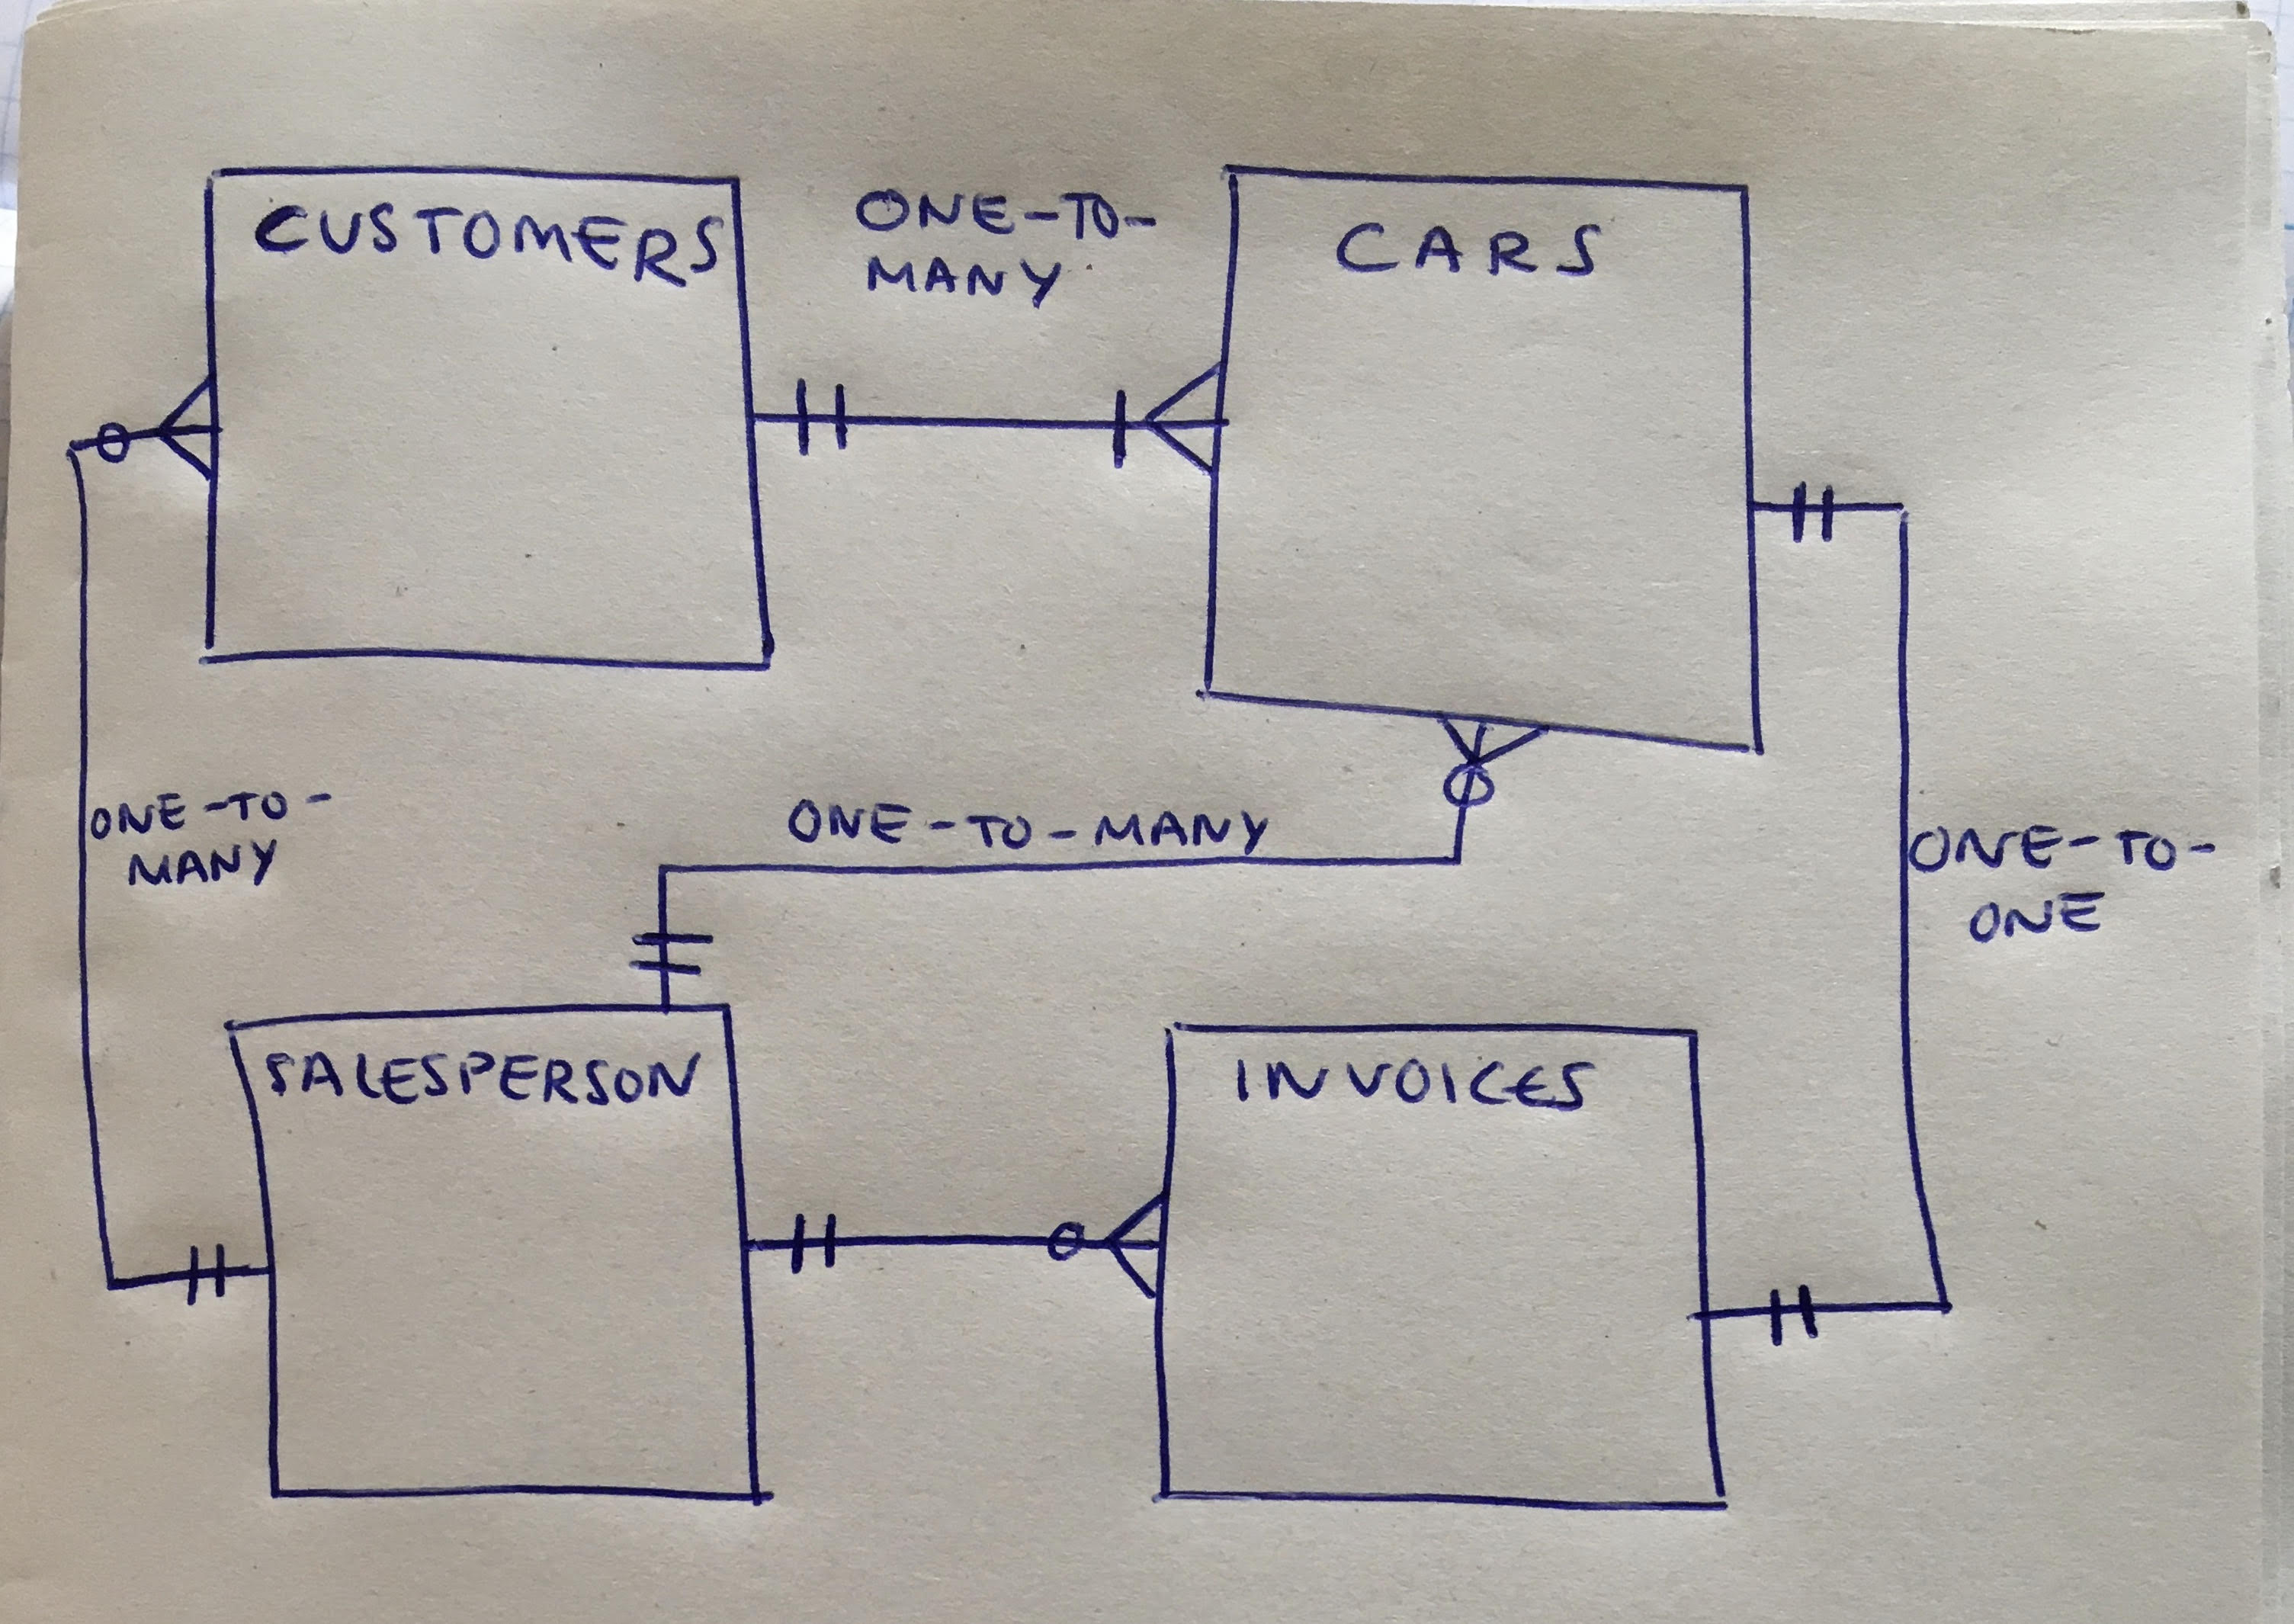 CUSTOMERS
ONE-TO-
MANY
CARS
ONE-TO-
MANY
ONE-TO-MANY
ONE-TO-
ONE
SALESPERSON
INVOICES